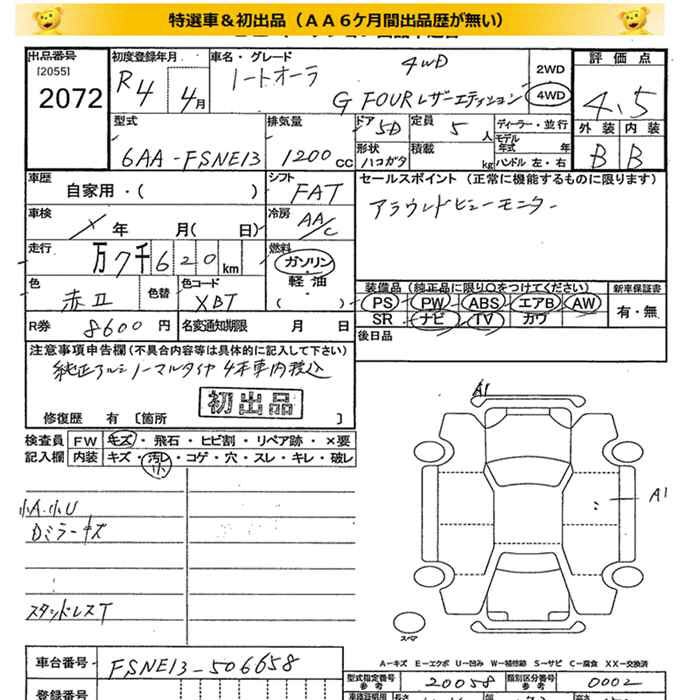 特選車&初出品（AA6ケ月間出品歴が無い）
出品番号
[2055]
2072
初度登録年月
R4 4月
車名・グレード
ノートオーラ 4WD
G FOURレザーエディション
2WD
4WD
評価点
4.5
外装 内装
B B
型式
6AA-FSNE13
排気量
1200cc
ドア
5D
定員 5人
形状
ハコガタ
積載 kg
ディーラー・並行
モデル年式 年
ハンドル 左・右
車歴
自家用・( )
シフト
FAT
セールスポイント（正常に機能するものに限ります）
アラウンドビューモニター
車検
年 月( 日)
冷房
AA/C
走行
万7千620km
燃料
ガソリン
軽油
( )
色
赤II
色替
色コード
XBT
装備品（純正品に限り○をつけてください）
PS PW ABS エアB AW
SR ナビ TV カワ
新車保証書
有・無
R券 8600円
名変通知期限 月 日
後日品
注意事項申告欄（不具合内容等は具体的に記入して下さい）
純正アルミノーマルタイヤ 4本車内積込
初出品
修復歴 有 [箇所 ]
検査員 FW キズ・飛石・ヒビ割・リペア跡・×要
記入欄 内装 キズ・汚レ・コゲ・穴・スレ・キレ・破レ
小
小A.小U
Dミラーキズ
スタッドレスT
A1
A1
スペア
A－キズ E－エクボ U－凹み W－補修跡 S－サビ C－腐食 XX－交換済
車台番号
FSNE13-506658
型式指定番号
参考
20058
類別区分番号
参考
0002
登録番号